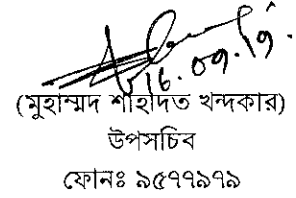 ১৬.০৭.১৭.
(মুহাম্মদ শাহাদত খন্দকার)
উপসচিব
ফোনঃ ৯৫৭৭৯৭৯